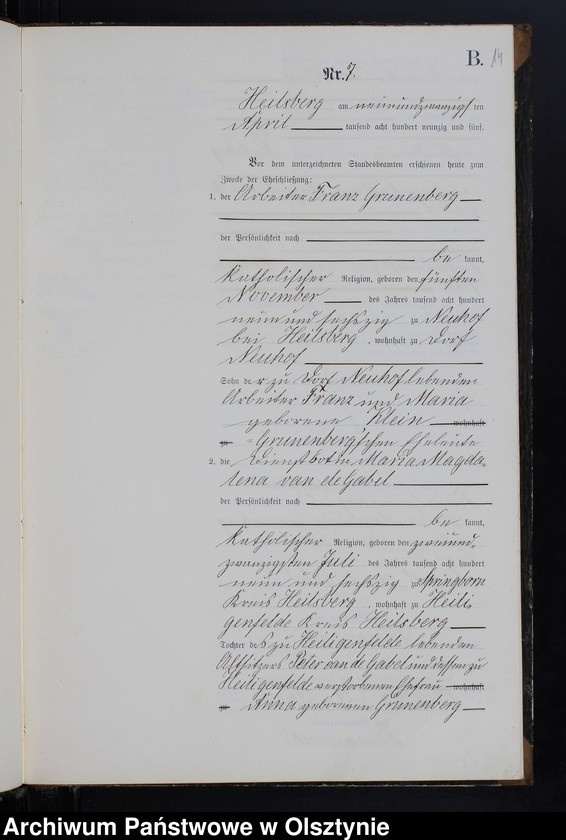 B.
14
Nr. 7.
Heilsberg am neunundzwanzigsten
April tausend acht hundert neunzig und fünf.
Vor dem unterzeichneten Standesbeamten erschienen heute zum
Zwecke der Eheschließung:
1. der Arbeiter Franz Grunenberg
der Persönlichkeit nach
be kannt,
katholischer Religion, geboren den fünften
November des Jahres tausend acht hundert
neun und sechszig zu Neuhof
bei Heilsberg, wohnhaft zu Dorf
Neuhof
Sohn de r zu Dorf Neuhof lebenden
Arbeiter Franz und Maria
geborene Klein wohnhaft
zu Grunenberg'schen Eheleute
2. die Dienstbotin Maria Magda-
lena van de Gabel
der Persönlichkeit nach
be kannt,
katholischer Religion, geboren den zweiund-
zwanzigsten Juli des Jahres tausend acht hundert
neun und sechszig zu Springborn
Kreis Heilsberg, wohnhaft zu Heili-
genfelde Kreis Heilsberg
Tochter des zu Heiligenfelde lebenden
Altsitzers Peter van de Gabel und dessen zu
Heiligenfelde verstorbenen Ehefrau wohnhaft
zu Anna geborenen Grunenberg
Archiwum Państwowe w Olsztynie